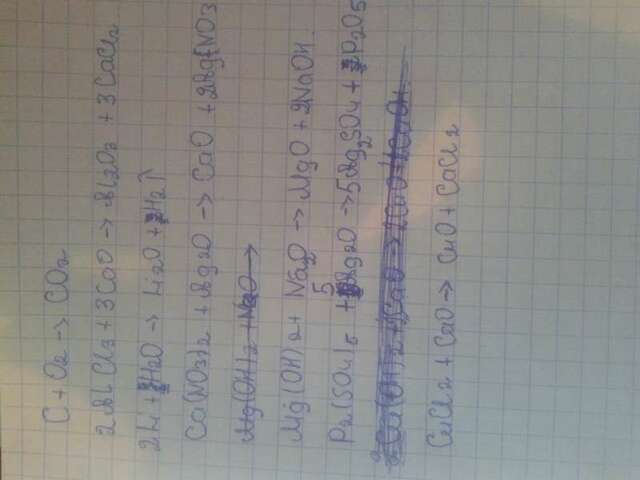 C + O2 → CO2
2AlCl3 + 3CaO → Al2O3 + 3CaCl2
2Li + H2O → Li2O + H2↑
Ca(NO3)2 + Ag2O → CaO + 2AgNO3
Mg(OH)2 + Na2O →
Mg(OH)2 + Na2O → MgO + 2NaOH
P2(SO4)5 + 5Ag2O → 5Ag2SO4 + P2O5
CuCl2 + CaO → CuO + CaCl2